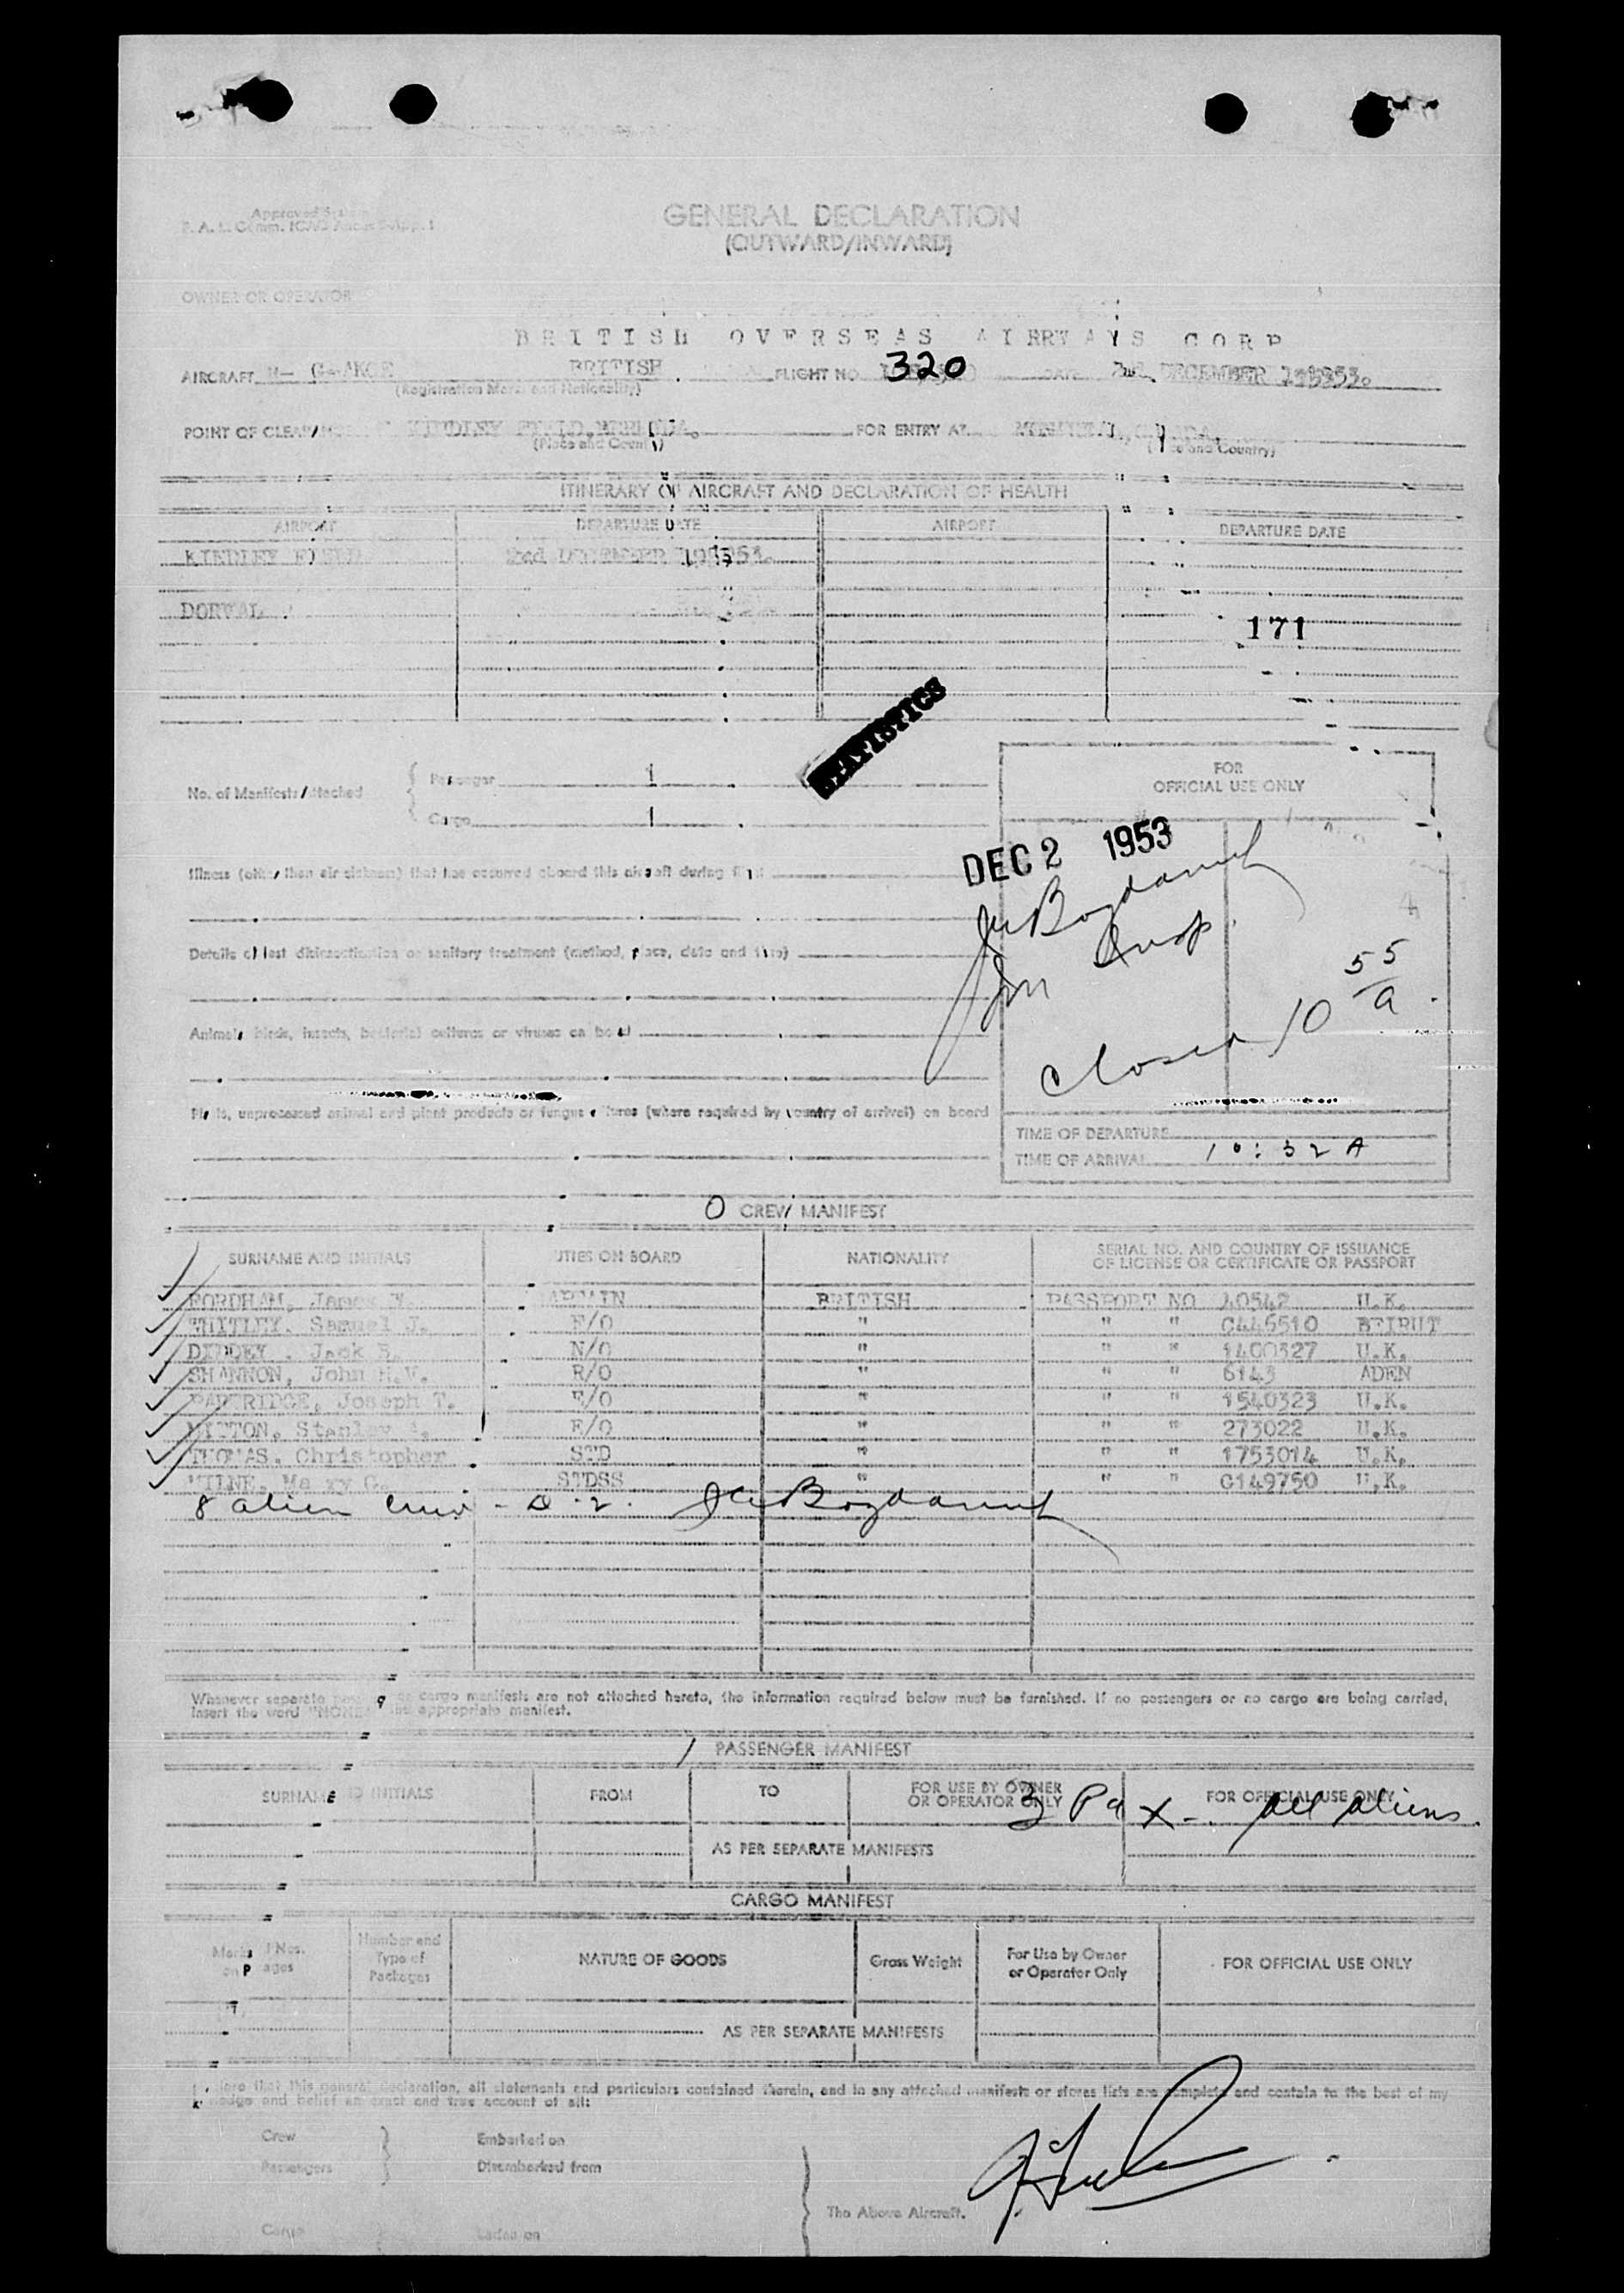 GENERAL DECLARATION
(OUTWARD/INWARD)
OWNER OR OPERATOR
BRITISH OVERSEAS AIRWAYS CORP
AIRCRAFT BRITISH FLIGHT NO. 320 DATE 2nd. DECEMBER 1953.
(Registration Marks and Nationality)
POINT OF CLEARANCE KINDLEY FIELD, BERMUDA. FOR ENTRY AT
(Place and Country) (Place and Country)
ITINERARY OF AIRCRAFT AND DECLARATION OF HEALTH
AIRPORT DEPARTURE DATE AIRPORT DEPARTURE DATE
KINDLEY FIELD 2nd DECEMBER 1953.
DORVAL
171
STATISTICS
No. of Manifests Attached { Passenger 1
Cargo 1
FOR
OFFICIAL USE ONLY
DEC 2 1953
Insp.
Closed 10 55/a.
Illness (other than air sickness) that has occurred aboard this aircraft during flight
Details of last disinsectization or sanitary treatment (method, place, date and time)
Animals, birds, insects, bacterial cultures or viruses on board
Plants, unprocessed animal and plant products or fungus cultures (where required by country of arrival) on board
TIME OF DEPARTURE
TIME OF ARRIVAL 10:32 A
CREW MANIFEST
SURNAME AND INITIALS DUTIES ON BOARD NATIONALITY SERIAL NO. AND COUNTRY OF ISSUANCE
OF LICENSE OR CERTIFICATE OR PASSPORT
FORDHAM, James CAPTAIN BRITISH PASSPORT NO 40542 U.K.
WHITLEY. Samuel J. F/O " " " C446510 BEIRUT
Jack N/O " " " 1400327 U.K.
SHANNON, John H.V. R/O " " " 6143 ADEN
PARTRIDGE, Joseph T. E/O " " " 1540323 U.K.
Stanley A. E/O " " " 273022 U.K.
THOMAS. Christopher STD " " " 1753014 U.K.
MILNE, Mary G. STDSS " " " C149750 U.K.
8 alien crew - D-2.
Whenever separate passenger or cargo manifests are not attached hereto, the information required below must be furnished. If no passengers or no cargo are being carried,
insert the word "NONE" in the appropriate manifest.
PASSENGER MANIFEST
SURNAME AND INITIALS FROM TO FOR USE BY OWNER
OR OPERATOR ONLY FOR OFFICIAL USE ONLY
3 Pax - all aliens.
AS PER SEPARATE MANIFESTS
CARGO MANIFEST
Marks and Nos.
on Packages Number and
Type of
Packages NATURE OF GOODS Gross Weight For Use by Owner
or Operator Only FOR OFFICIAL USE ONLY
AS PER SEPARATE MANIFESTS
declare that this general declaration, all statements and particulars contained therein, and in any attached manifests or stores lists are complete and contain to the best of my
knowledge and belief an exact and true account of all:
Crew Embarked on
Passengers Disembarked from
The Above Aircraft.
Cargo Laden on